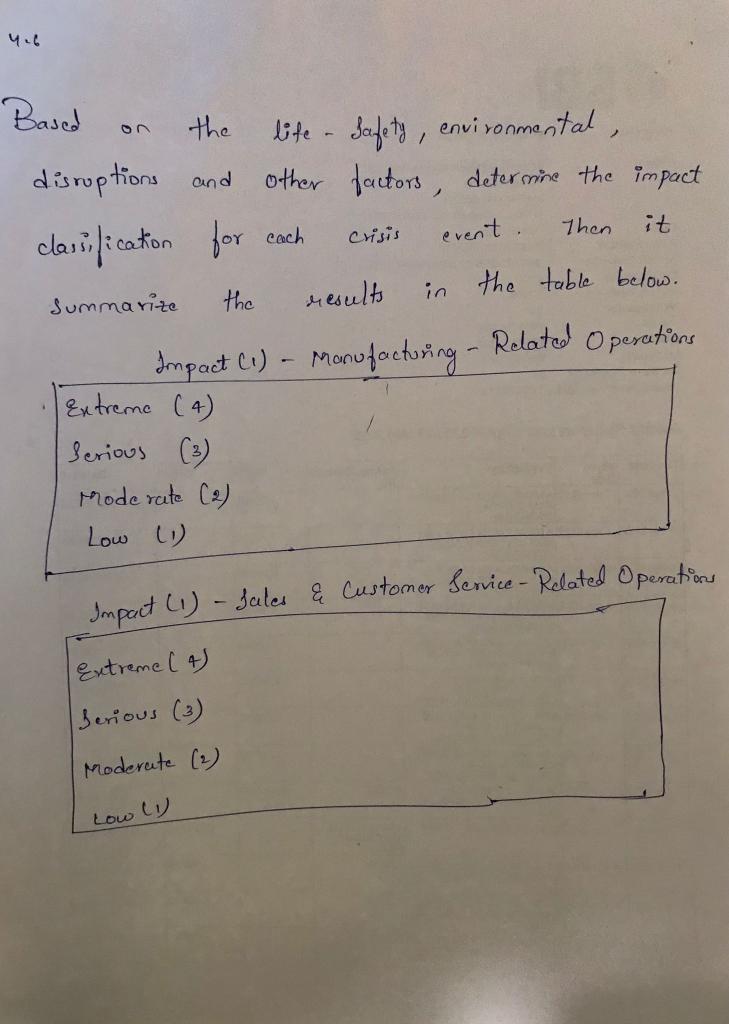 4.6
Based on the life - Safety, environmental,
disruptions and other factors, determine the impact
classification for each crisis event. Then it
Summarize the results in the table below.
Impact (1) - Manufacturing - Related Operations
Extreme (4)
Serious (3)
Moderate (2)
Low (1)
Impact (1) - Sales & Customer Service - Related Operations
Extreme (4)
Serious (3)
Moderate (2)
Low (1)